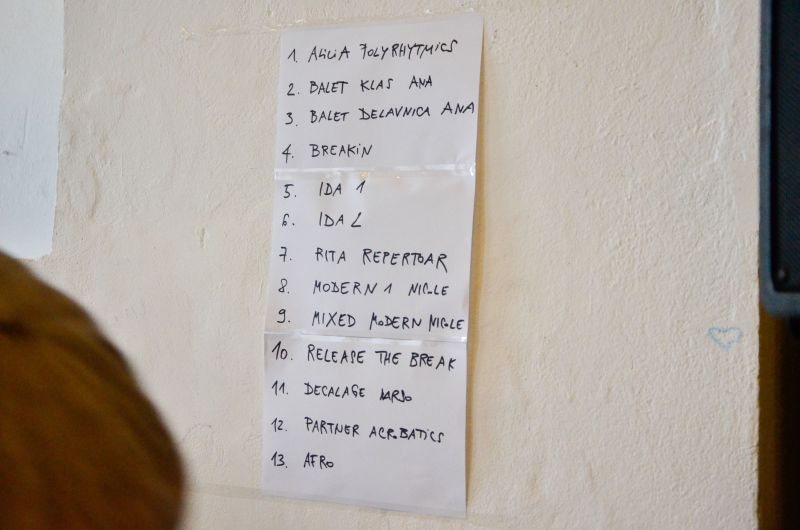 1. ALICIA POLYRHYTMICS
2. BALET KLAS ANA
3. BALET DELAVNICA ANA
4. BREAKIN
5. IDA 1
6. IDA 2
7. RITA REPERTOAR
8. MODERN 1 NICOLE
9. MIXED MODERN NICOLE
10. RELEASE THE BREAK
11. DECALAGE
12. PARTNER ACROBATICS
13. AFRO